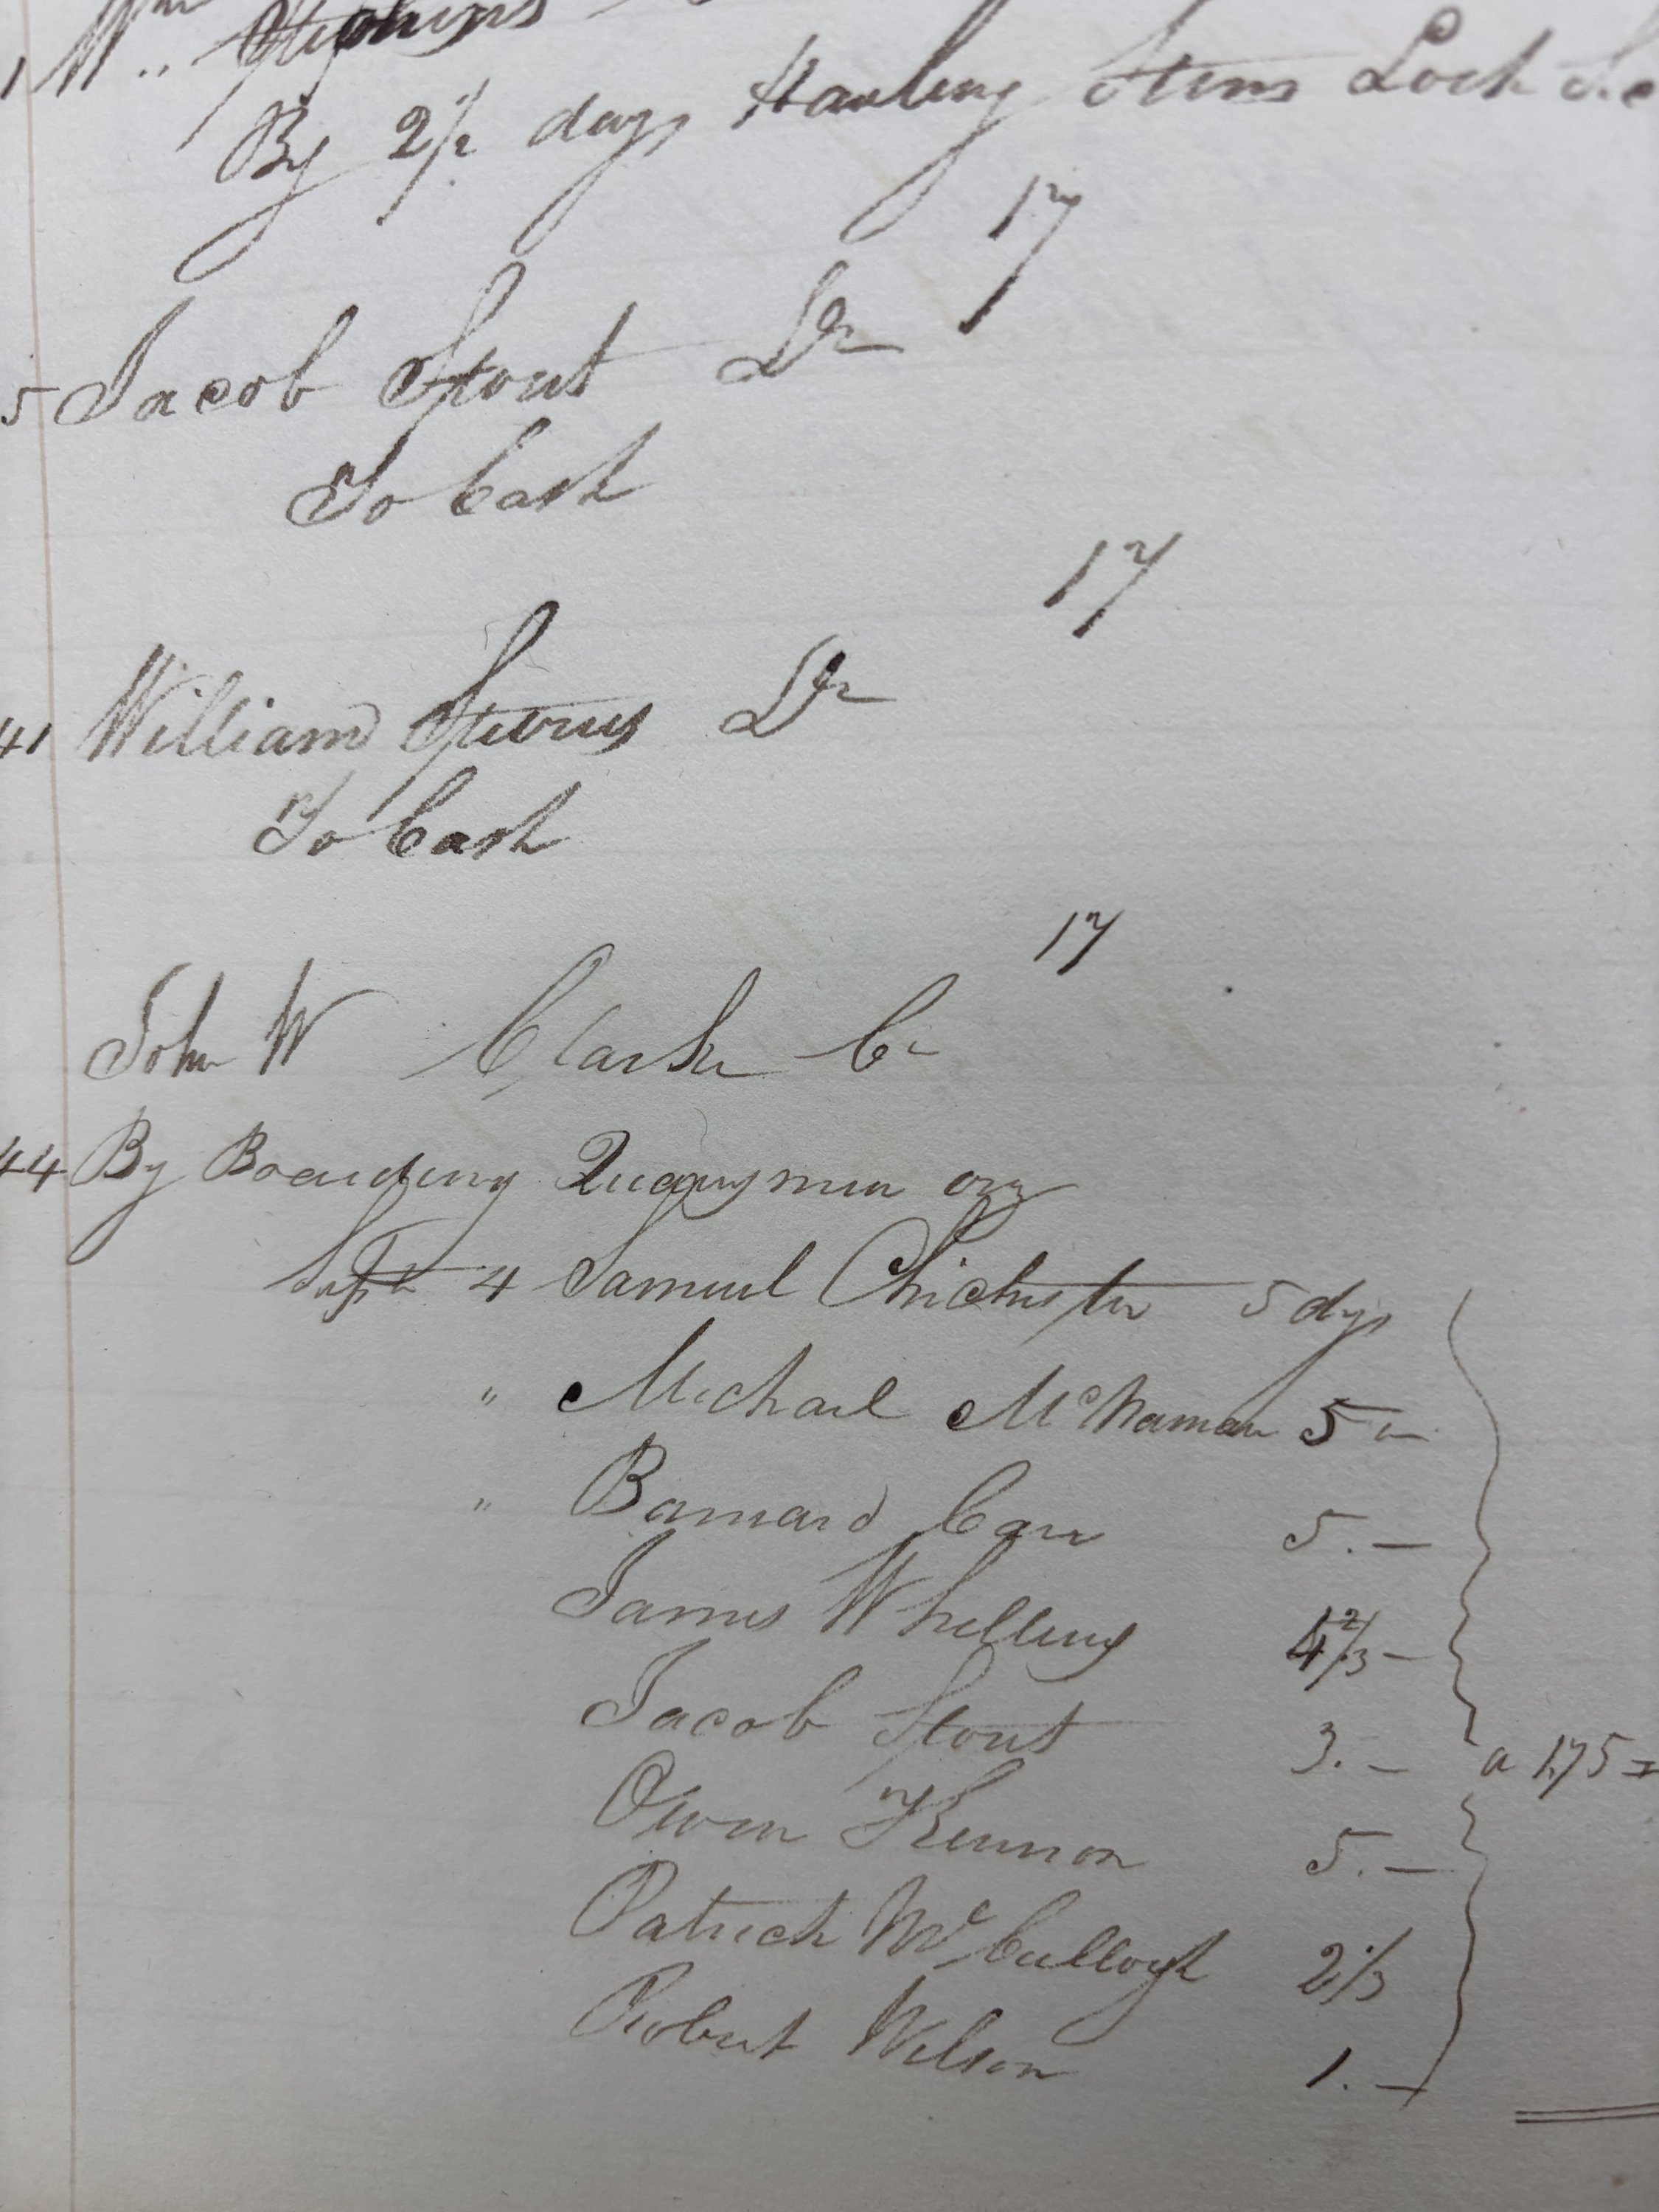 Wm Stephens
By 2½ days Hauling Stems Lock
17
5 Jacob Stout Dr
To Cash
17
41 William Sterns Dr
To Cash
17
John W Clarke Cr
44 By Boarding Quarrymen
Sept 4 Samuel Chichester 5 dys
" Michael McNamara 5 "
" Barnard Carr 5.—
James Whelling 4 2/3 —
Jacob Stout 3.— a 1.75
Owen Kennon 5.—
Patrick McCullogh 2 1/3
Robert Wilson 1.—